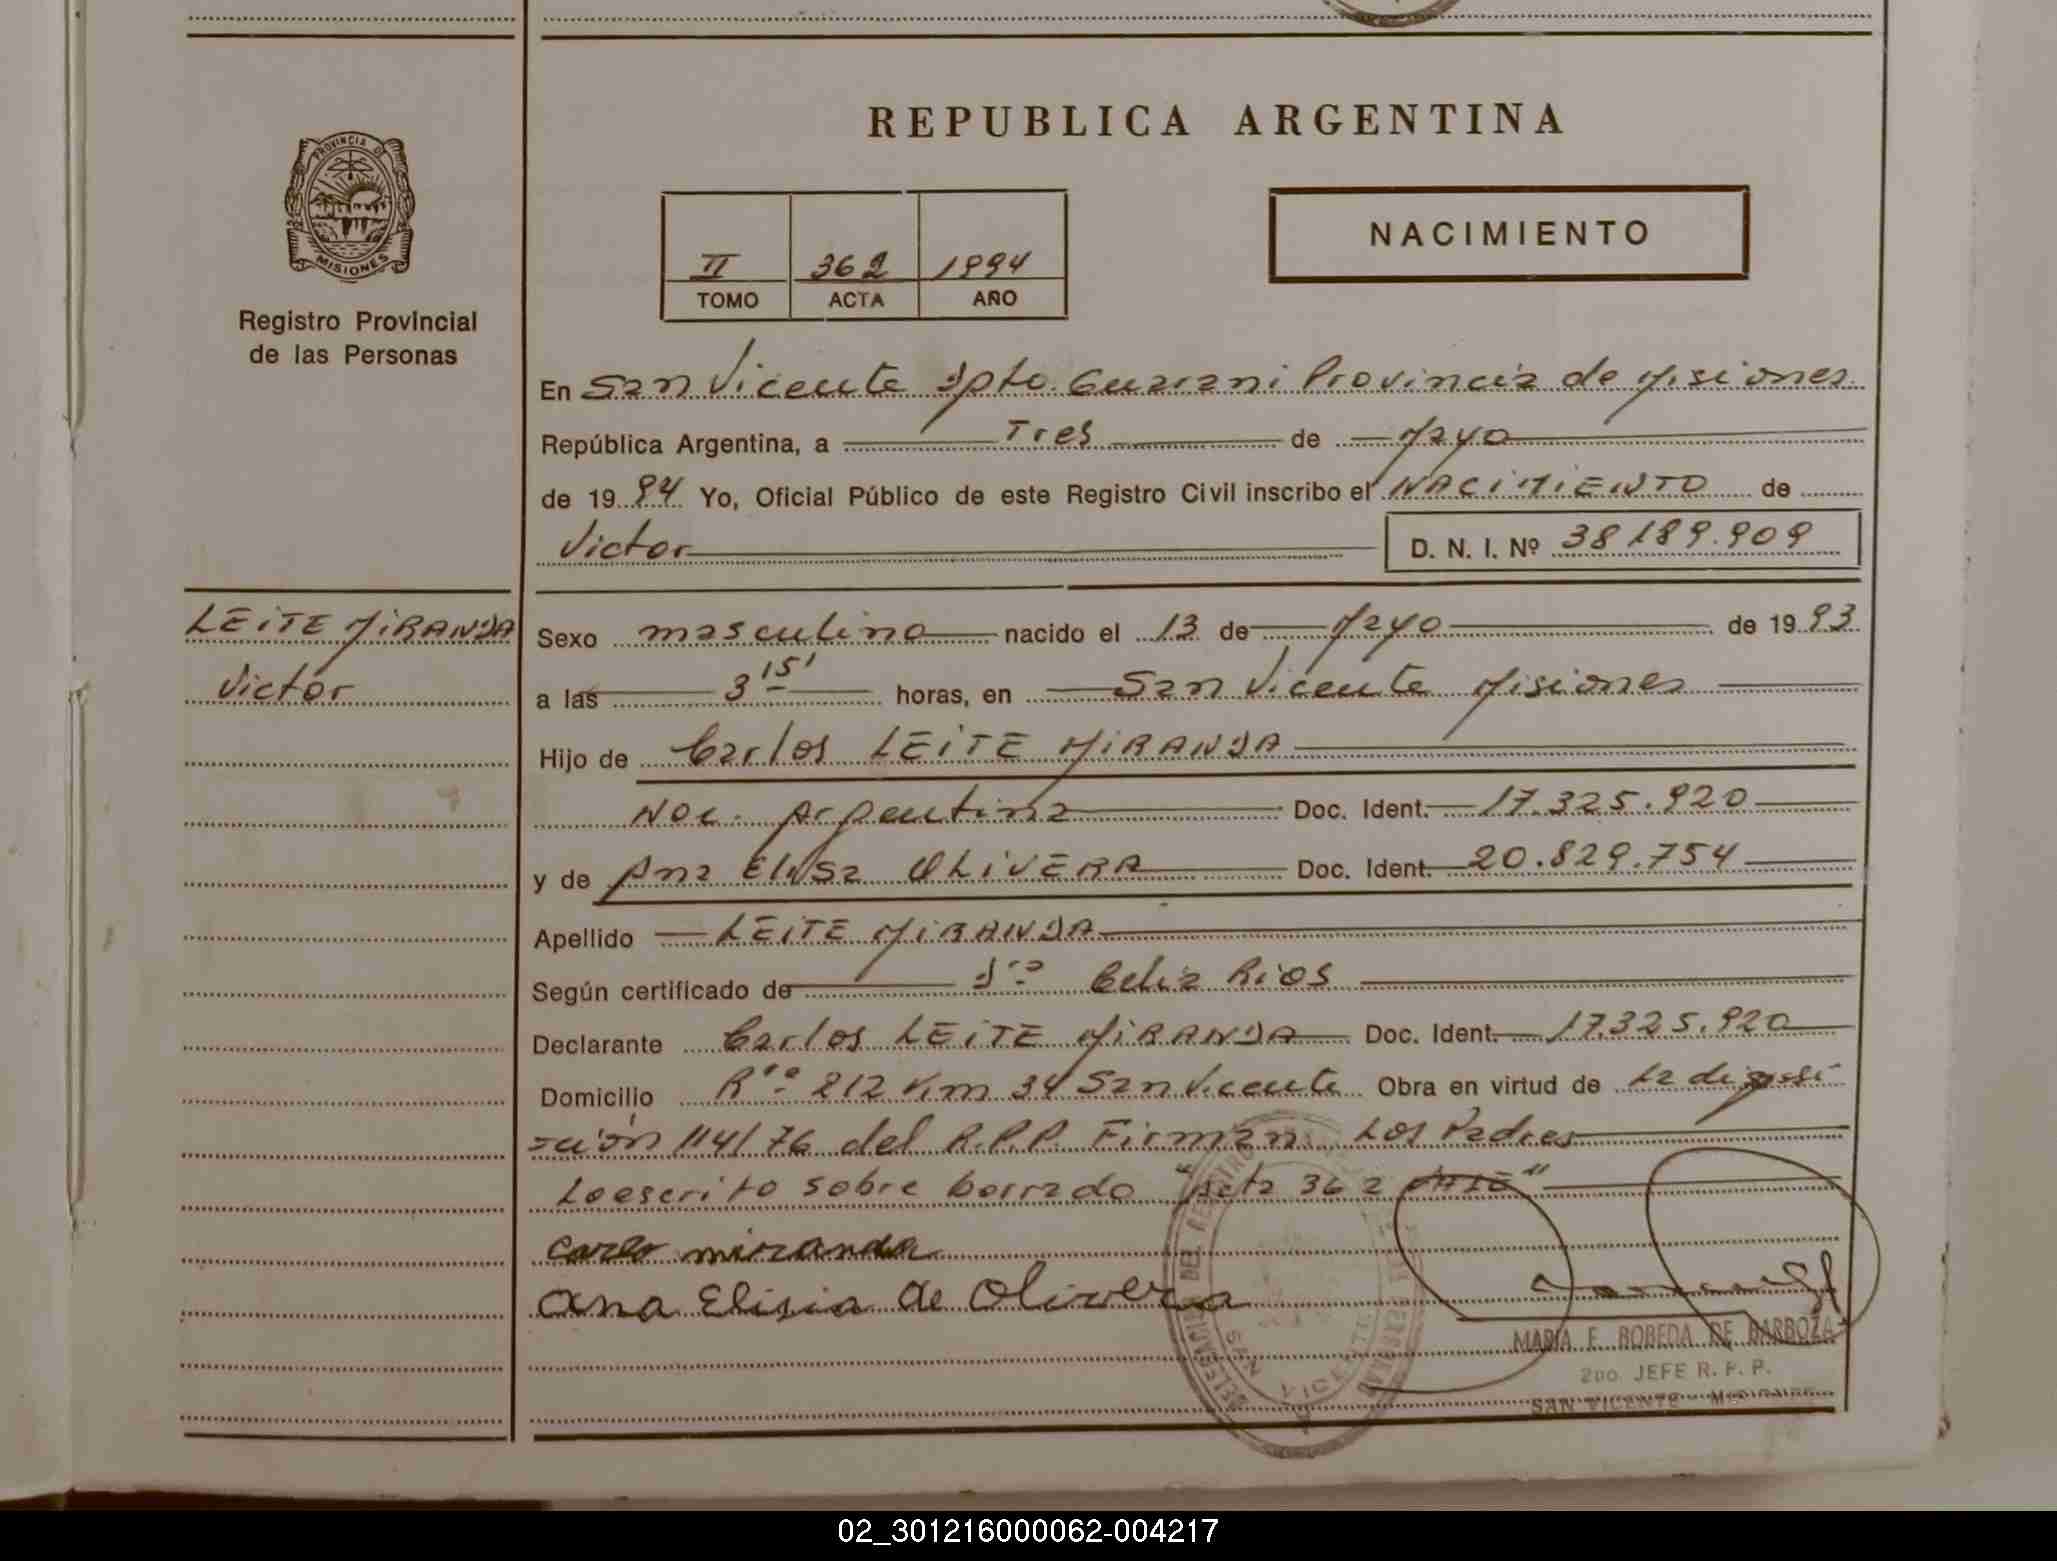 REPUBLICA ARGENTINA
PROVINCIA DE
MISIONES
Registro Provincial
de las Personas
II 362 1994
TOMO ACTA AÑO
NACIMIENTO
En San Vicente Dpto. Guarani Provincia de Misiones
República Argentina, a Tres de Mayo
de 19 94 Yo, Oficial Público de este Registro Civil inscribo el NACIMIENTO de
Victor D. N. I. Nº 38189.909
LEITE MIRANDA
Victor
Sexo masculino nacido el 13 de Mayo de 19 93
a las 3 15' horas, en San Vicente Misiones
Hijo de Carlos LEITE MIRANDA
Nac. Argentina Doc. Ident. 17.325.920
y de Ana Elisa OLIVERA Doc. Ident. 20.829.754
Apellido LEITE MIRANDA
Según certificado de Dra Celia Rios
Declarante Carlos LEITE MIRANDA Doc. Ident. 17.325.920
Domicilio Rta 212 Km 34 San Vicente Obra en virtud de La disposi
ción 114/76 del R.P.P. Firman Los Padres
Lo escrito sobre borrado "acta 362
carlo miranda
ana Elisia de Olivera
DELEGACION DEL REGISTRO
SAN VICENTE
MARIA E. BOBEDA DE BARBOZA
2DO. JEFE R. P. P.
SAN VICENTE - MISIONES
02_301216000062-004217